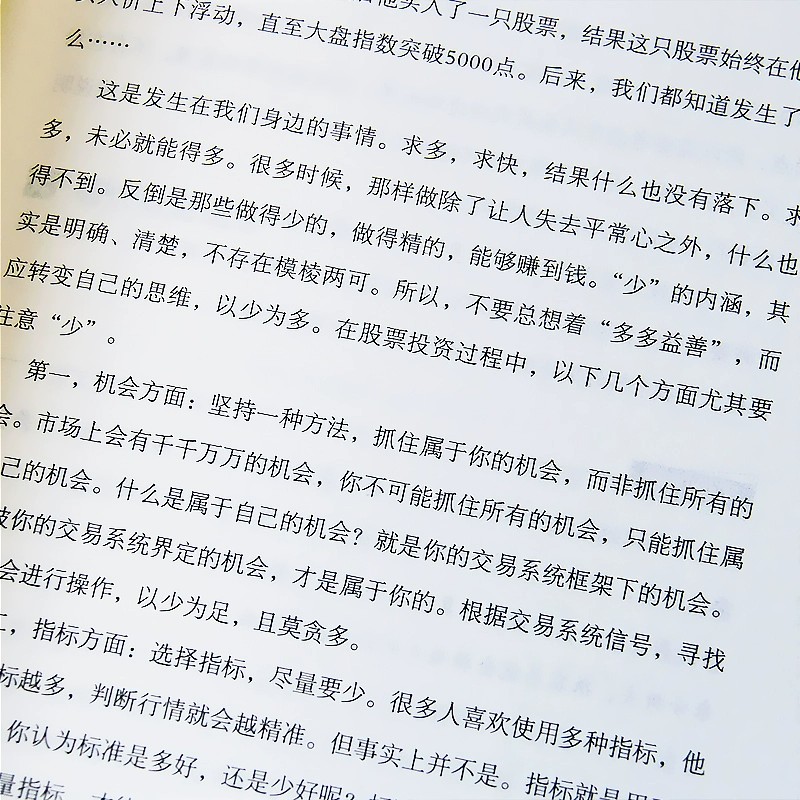 他买入了一只股票，结果这只股票始终在他
价上下浮动，直至大盘指数突破5000点。后来，我们都知道发生了
么……
这是发生在我们身边的事情。求多，求快，结果什么也没有落下。求
多，未必就能得多。很多时候，那样做除了让人失去平常心之外，什么也
得不到。反倒是那些做得少的，做得精的，能够赚到钱。“少”的内涵，其
实是明确、清楚，不存在模棱两可。所以，不要总想着“多多益善”，而
应转变自己的思维，以少为多。在股票投资过程中，以下几个方面尤其要
注意“少”。
第一，机会方面：坚持一种方法，抓住属于你的机会，而非抓住所有的
会。市场上会有千千万万的机会，你不可能抓住所有的机会，只能抓住属
己的机会。什么是属于自己的机会？就是你的交易系统框架下的机会。
被你的交易系统界定的机会，才是属于你的。根据交易系统信号，寻找
会进行操作，以少为足，且莫贪多。
二，指标方面：选择指标，尽量要少。很多人喜欢使用多种指标，他
标越多，判断行情就会越精准。但事实上并不是。指标就是用
你认为标准是多好，还是少好呢？
量指标